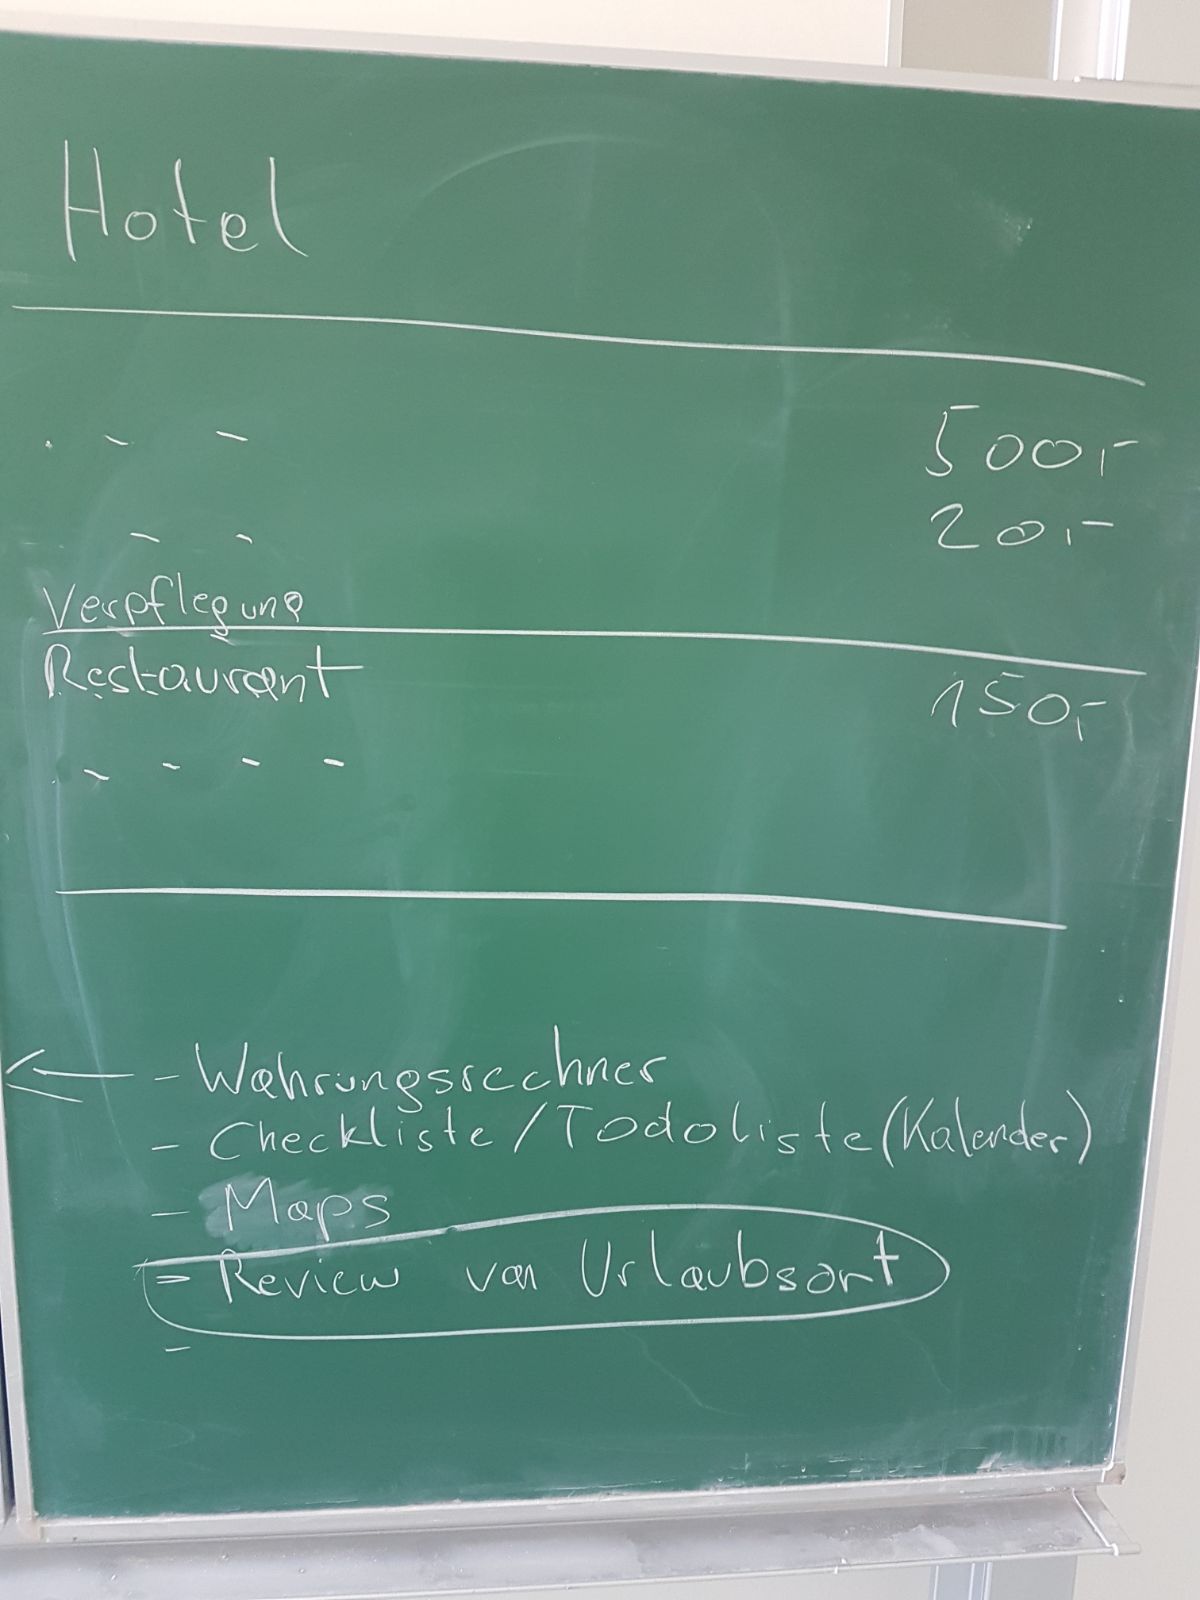 Hotel
. - - 500,-
- - 20,-
Verpflegung
Restaurant 150,-
. - - - -
- Wahrungsrechner
- Checkliste/Todoliste (Kalender)
- Maps
- Review von Urlaubsort
-